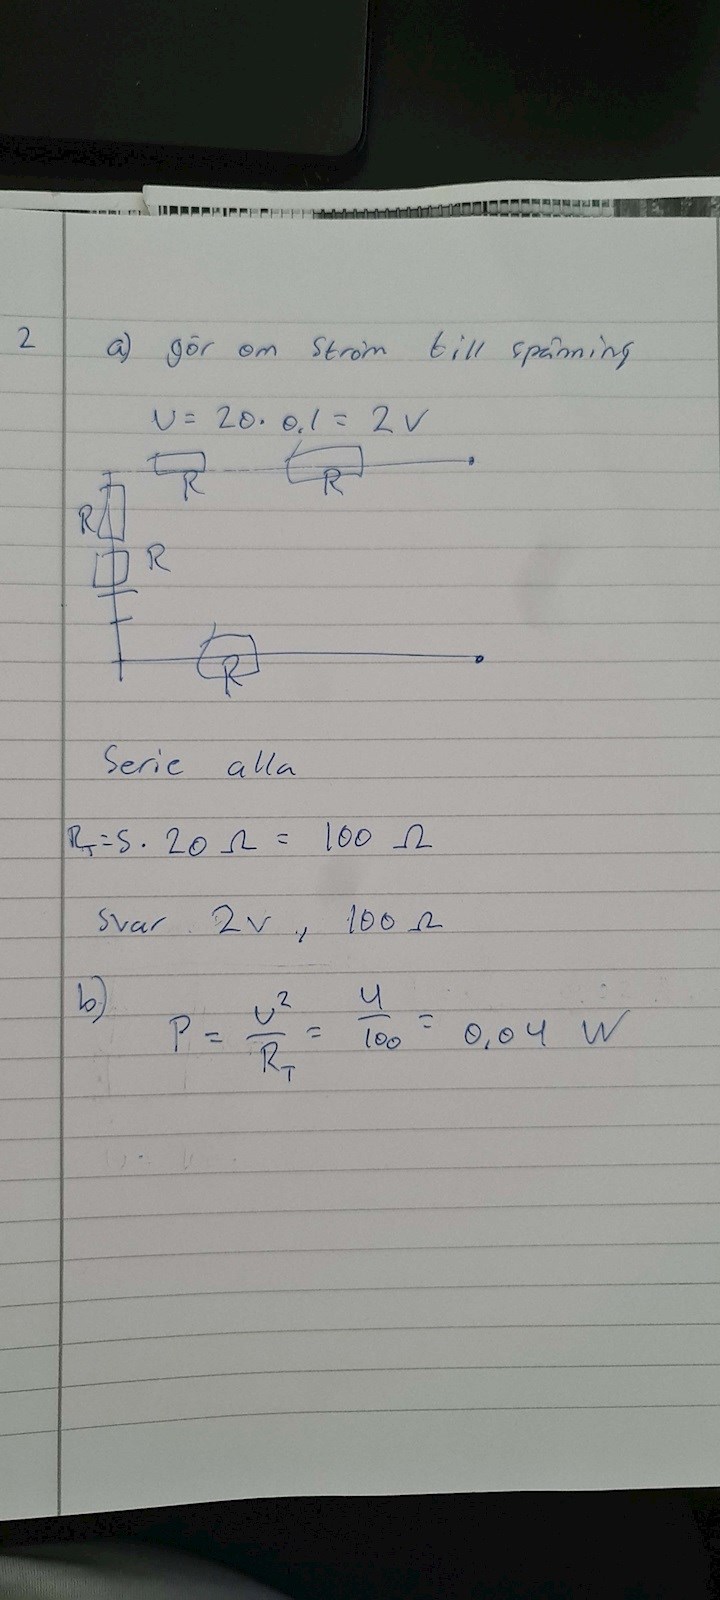 2 a) gör om Ström till spänning
U = 20 · 0,1 = 2 V
R R
R
R
R
Serie alla
R_T = 5 · 20 Ω = 100 Ω
Svar 2V, 100 Ω
b) P = U²/R_T = 4/100 = 0,04 W